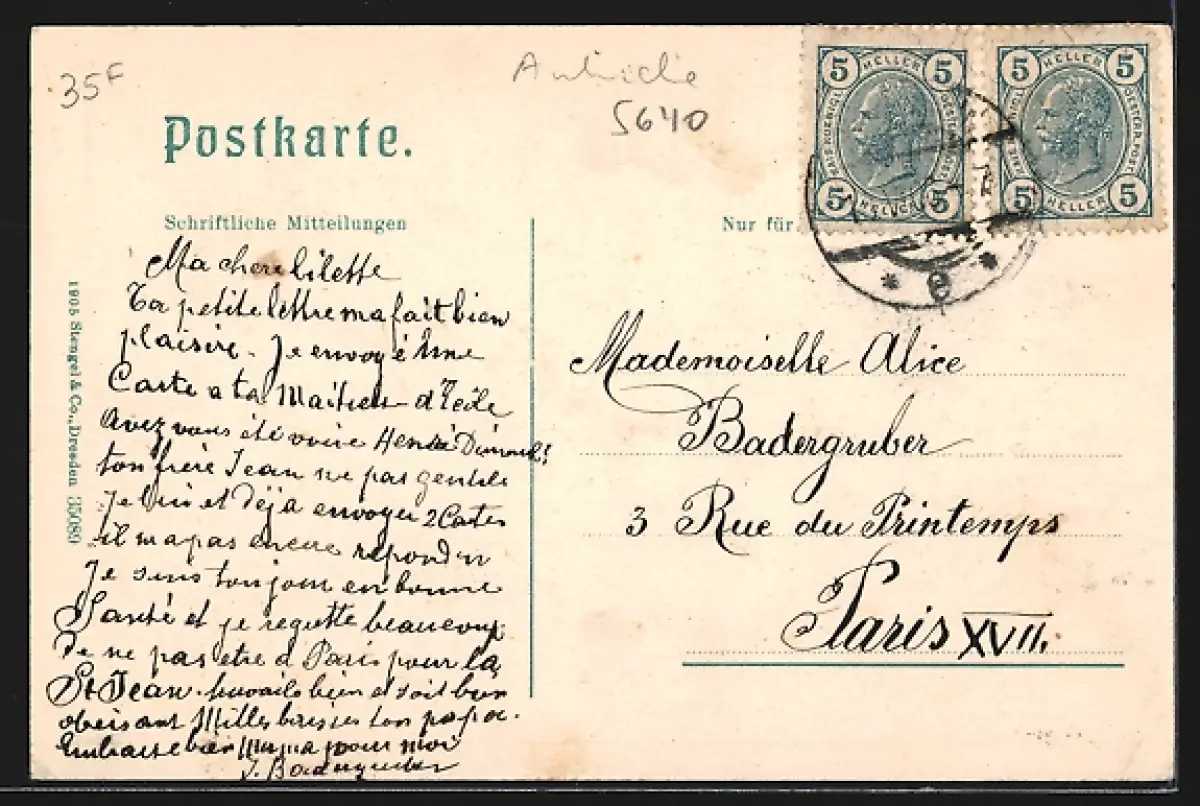 35F
Autriche
5640
Postkarte.
5 HELLER 5
5 HELLER 5
5 HELLER 5
5 HELLER 5
Schriftliche Mitteilungen
Nur für
* e *
Ma chere lilette
Ta petite lettre ma fait bien
plaisire. Je envoyé une
Carte a ta Maitresse d'École
Avez vous été voire Henri
ton frère Jean ne pas gentile
Je lui et Déja envoyer 2 Cartes
il ma pas encore repondu
Je suis toujour en bonne
Santé et je regrette beaucoup
De ne pas etre a Paris pour la
St Jean. travaile bien et soit bien
obeisant Milles baises ton papa.
Embrasse bien Mama pour moi
J. Badergruber
Mademoiselle Alice
Badergruber
3 Rue du Printemps
Paris XVII.
1905 Stengel & Co., Dresden 35089